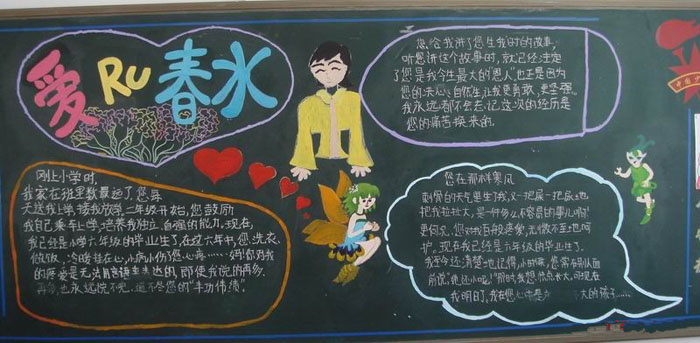 爱 RU 春水
您给我讲了您生我时的故事,
听您讲这个故事时,就已经注定
了您是我今生最大的"恩人"也正是因为
您的关心、自你生,让我更勇敢、更坚强。
我永远都不会忘记,这次的经历是
您的痛苦换来的。
刚上小学时,
我家在班里数最远了,您每
天送我上学,接我放学,二年级开始,您鼓励
我自己乘车上学,培养我独立、自强的能力,现在,
我已经是小学六年级的毕业生了,在这六年中,您洗衣、
做饭、冷暖挂在心,小病小伤您心疼……妈!您对我
的厚爱是无法用言语来表达的,即使我说的再多、
再多,也永远说不完、道不尽您的"丰功伟绩"。
您在那料寒风
刺骨的天气里生了我,又一把屎一把尿地
把我拉扯大,是一件多么不容易的事儿啊!
更何况,您对我百般疼爱,无微不至地呵
护,现在我已经是六年级的毕业生了,
我至今还清楚地记得,小时候,您常在别人面
前说,"她还小呢!"那时我想,快点长大,可现在
我明白了,我在您心中是 大的孩子……
中国